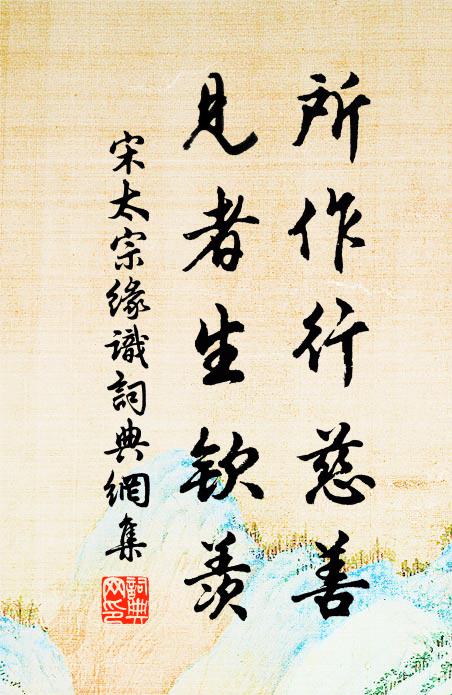 所作行慈善
見者生欽羨
宋太宗緣識詞典網集
詞典網印